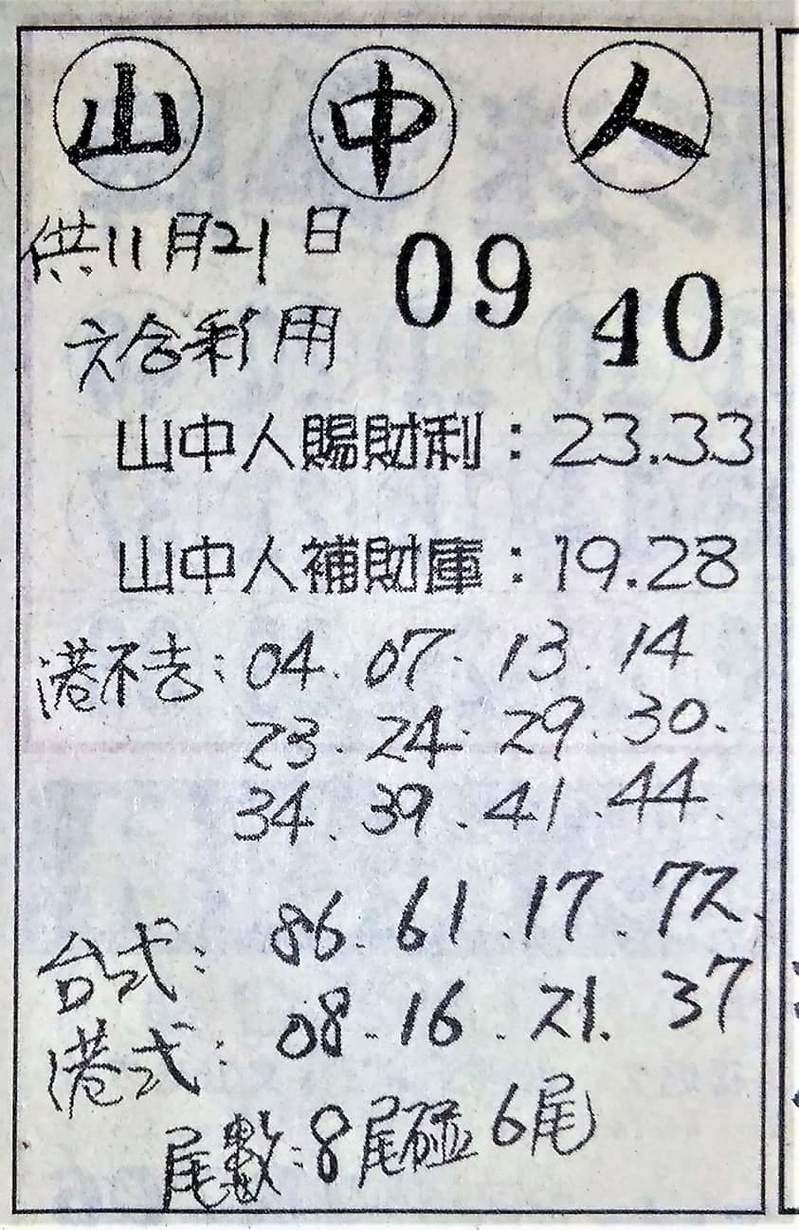 山中人
供11月21日
09 40
六合彩用
山中人賜財利：23.33
山中人補財庫：19.28
港不去：04.07.13.14
23.24.29.30.
34.39.41.44.
台式：86.61.17.72.
港式：08.16.21.37
尾數：8尾碰6尾